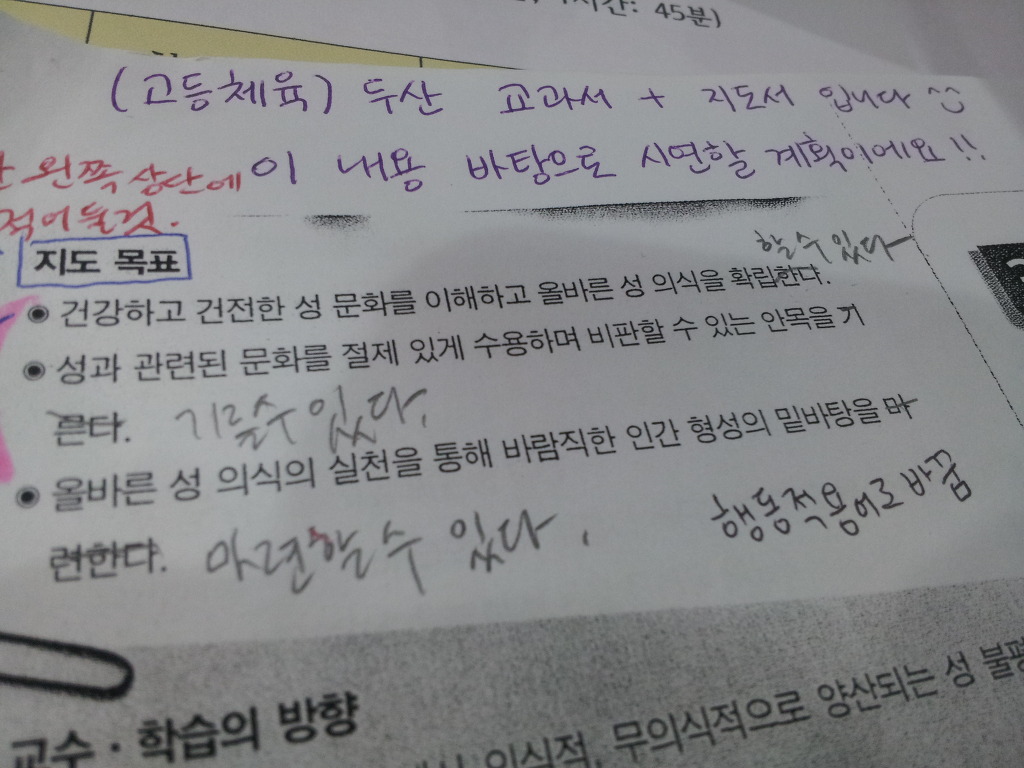 시간: 45분)
(고등체육) 두산 교과서 + 지도서 입니다
왼쪽 상단에 이 내용 바탕으로 시연할 계획이에요!!
적어둘것.
지도 목표
할 수 있다
◉ 건강하고 건전한 성 문화를 이해하고 올바른 성 의식을 확립한다.
◉ 성과 관련된 문화를 절제 있게 수용하며 비판할 수 있는 안목을 기
른다. 기를 수 있다.
◉ 올바른 성 의식의 실천을 통해 바람직한 인간 형성의 밑바탕을 마
련한다. 마련할 수 있다.
행동적용어로 바꿈
교수·학습의 방향
의식적, 무의식적으로 양산되는 성 불평